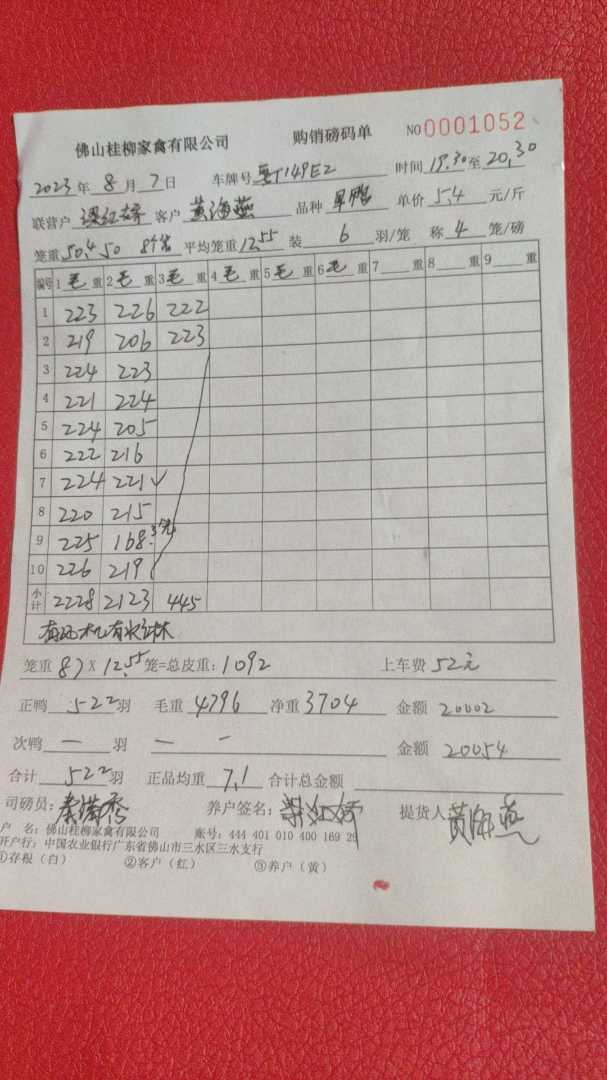 佛山桂柳家禽有限公司 购销磅码单 NO 0001052
2023年8月7日 车牌号 粤J149E2 时间 19.30至20,30
联营户 客户 黄海燕 品种 单价 5.4 元/斤
笼重 50,4 50 8个笼 平均笼重 12.55 装 6 羽/笼 称 4 笼/磅
编号 1 毛 重 2 毛 重 3 毛 重 4 毛 重 5 毛 重 6 毛 重 7 重 8 重 9 重
1 223 226 222
2 219 206 223
3 224 223
4 221 224
5 224 205
6 222 216
7 224 221
8 220 215
9 225 168. 3笼
10 226 219
小计 2228 2123 445
笼重 87 X 12.55 笼=总皮重: 1092 上车费 52元
正鸭 522 羽 毛重 4796 净重 3704 金额 20002
次鸭 — 羽 — — 金额 20054
合计 522 羽 正品均重 7,1 合计总金额
司磅员: 养户签名: 提货人 黄海燕
户 名: 佛山桂柳家禽有限公司 账号: 444 401 010 400 169 29
开户行: 中国农业银行广东省佛山市三水区三水支行
①存根(白) ②客户(红) ③养户(黄)